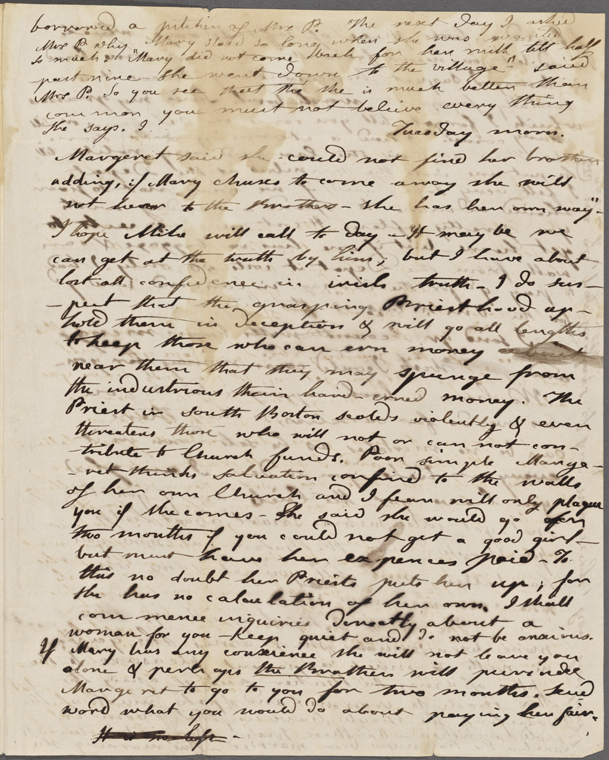 borrowed a pitcher of Mrs P. The next day I asked
Mrs P. why Mary staid so long when she was wanted
so much "Mary did not come back for her milk till half
past nine she went down to the village" said
Mrs P. So you see that the she is much better than
common you must not believe every thing
she says. I Tuesday morn.
Margeret said she could not find her brothers
adding, if Mary chuses to come away she will
not hear to the Brothers - she has her own way" -
I hope Mike will call to day - It may be we
can get at the truth by him; but I have about
lost all confidence in irish truth - I do sus-
-pect that the grasping Priesthood up-
hold them in deception & will go all lengths
to keep those who can ern money
near them that they may spunge from
the industrious thair hard-erned money. The
Priest in South Boston scolds violently & even
threatens those who will not or can not con-
tribute to Church funds. Poor simple Marge-
-ret thinks salvation confined to the walls
of her own Church and I fear will only plague
you if she comes - She said she would go for
two months if you could not get a good girl -
but must have her expences paid - To
this no doubt her Priests puts her up; for
she has no calculation of her own. I shall
commence inquiries directly about a
woman for you - Keep quiet and do not be anxious.
If Mary has any conscience she will not leave you
alone & perhaps the Brothers will persuade
Margeret to go to you for two months. Send
word what you would do about paying her fair.